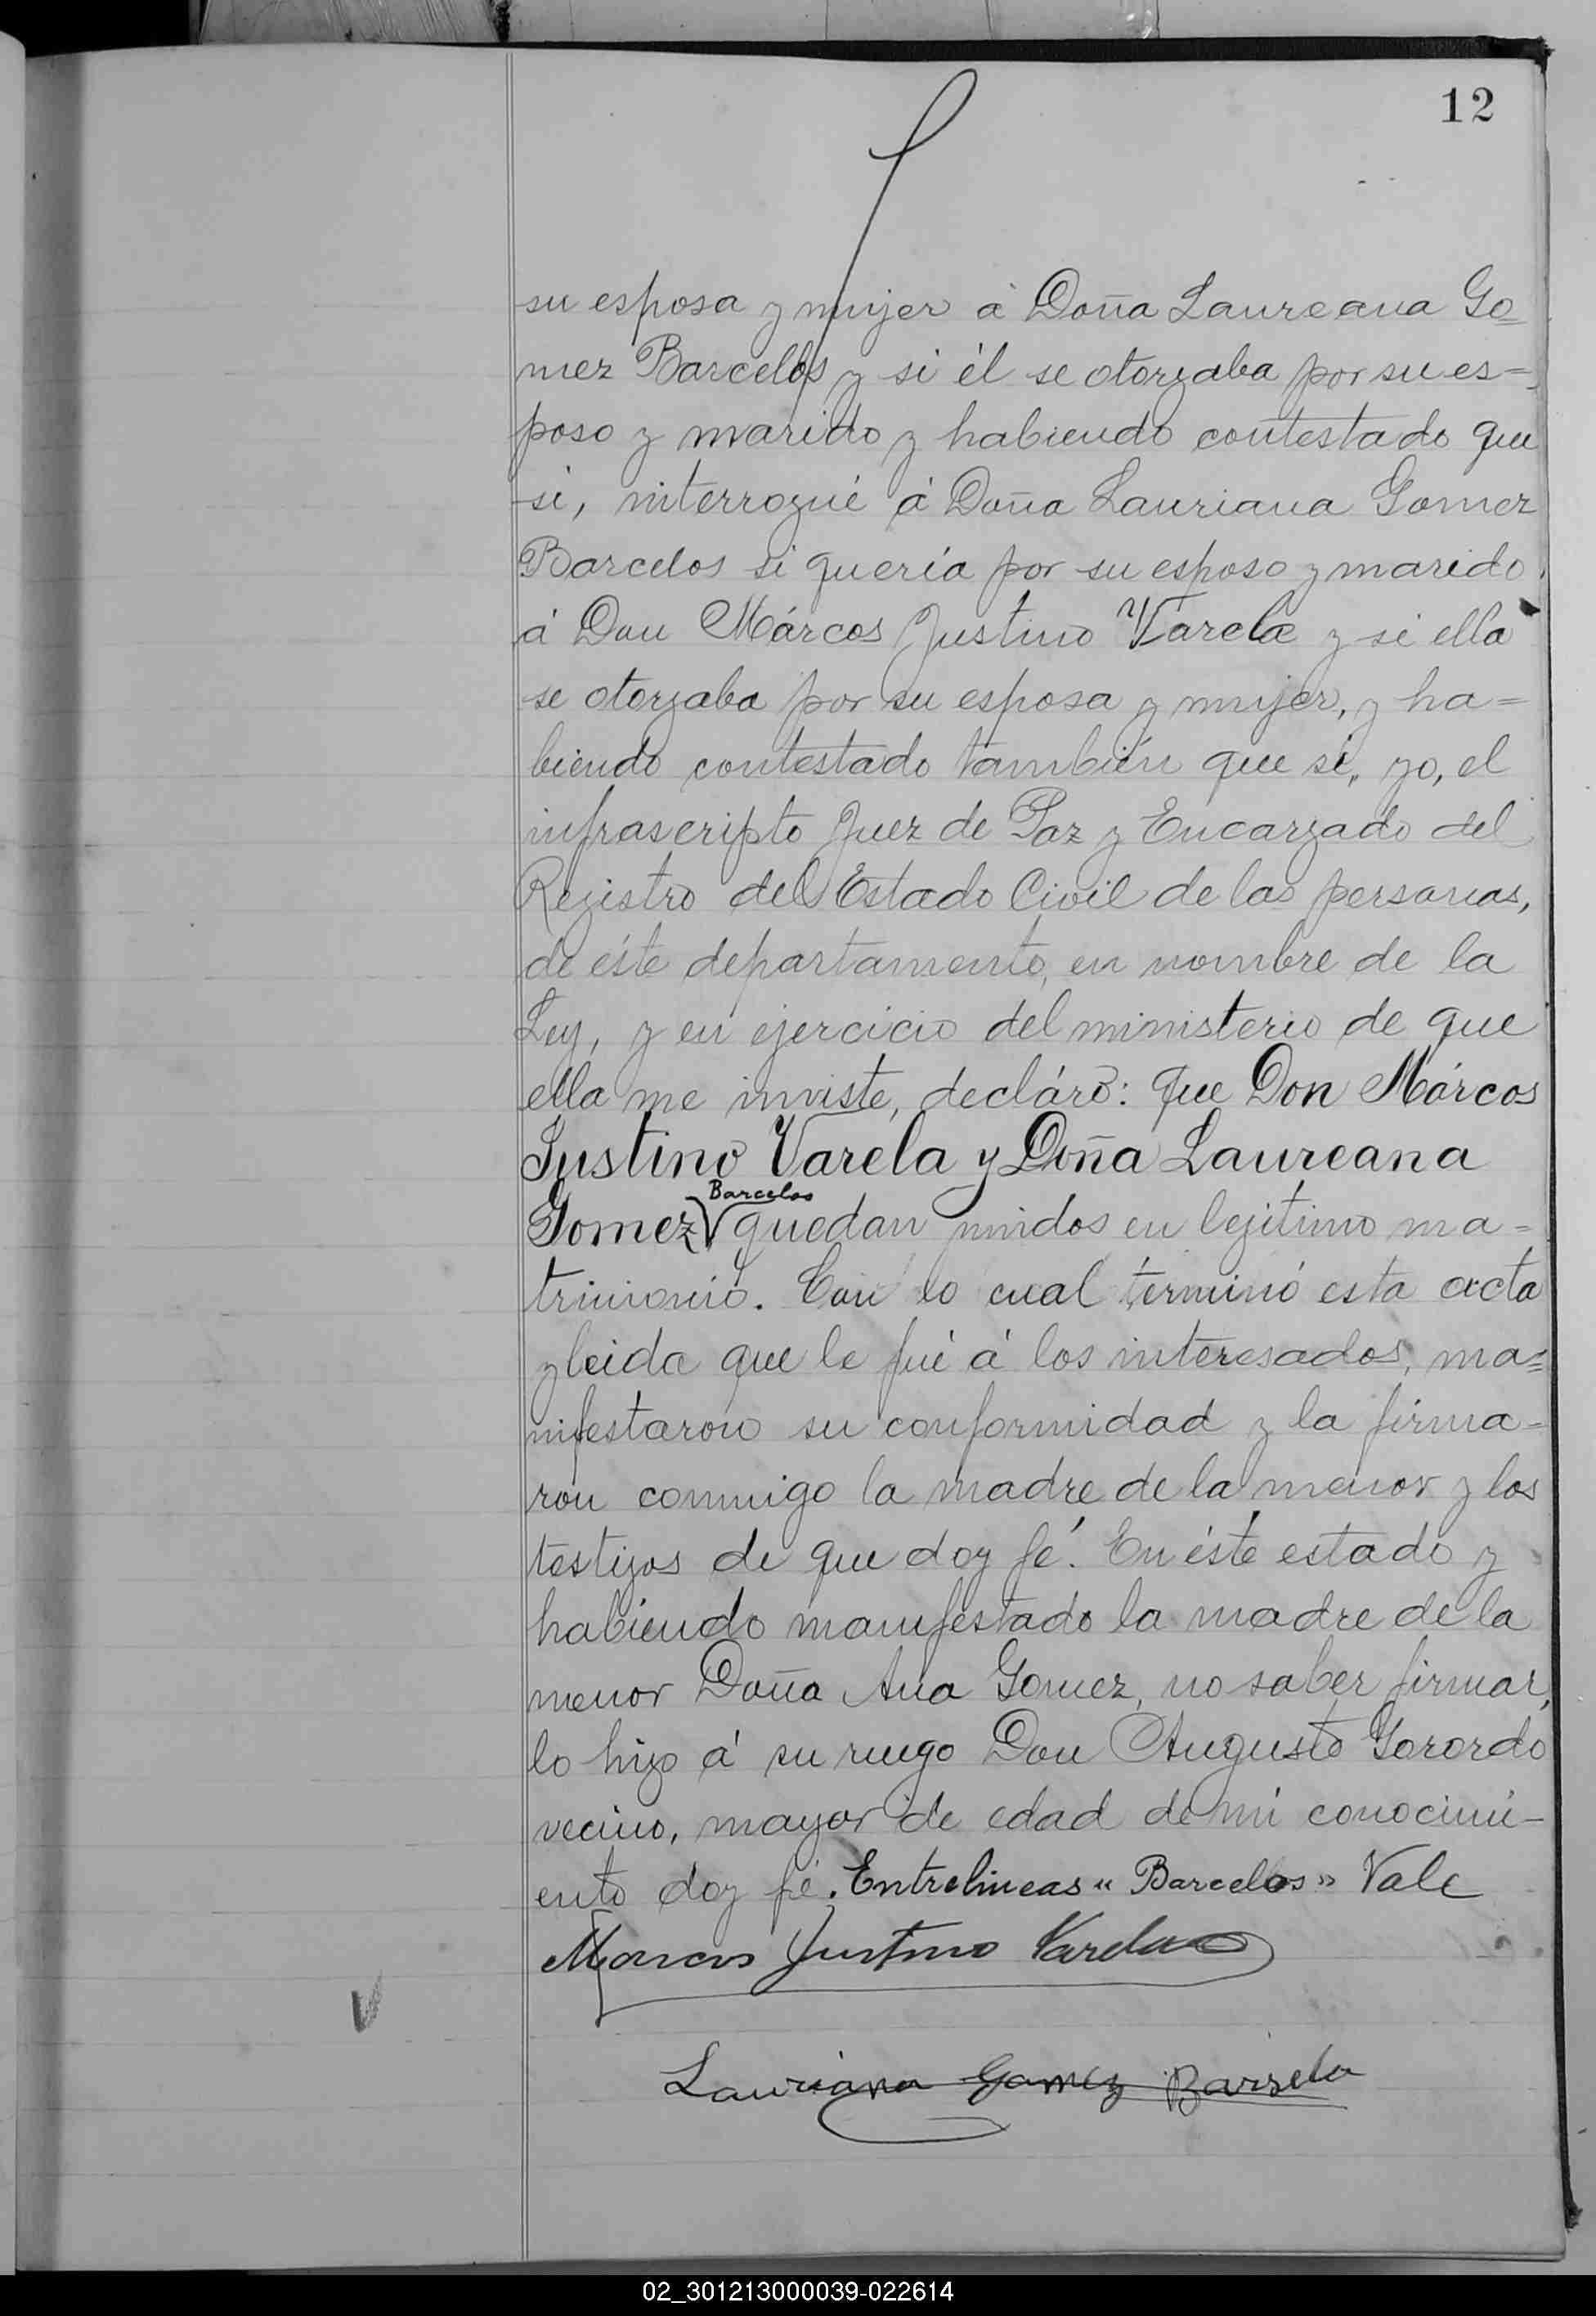 12
su esposa y mujer á Doña Laureana Go=
mez Barcelos y si él se otorgaba por su es=
poso y marido y habiendo contestado que
si, interrogué á Doña Lauriana Gomez
Barcelos si quería por su esposo y marido
á Don Márcos Justino Varela y si ella
se otorgaba por su esposa y mujer, y ha=
biendo contestado también que si, yo, el
infrascripto Juez de Paz y Encargado del
Registro del Estado Civil de las personas,
de éste departamento, en nombre de la
Ley, y en ejercicio del ministerio de que
ella me inviste, decláro: que Don Márcos
Justino Varela y Doña Laureana
Barcelos
Gomez quedan unidos en legitimo ma=
trimonio. Con lo cual terminó esta acta
y leida que le fué á los interesados, ma=
nifestaron su conformidad y la firma=
ron conmigo la madre de la menor y los
testigos de que doy fé. En éste estado y
habiendo manifestado la madre de la
menor Doña Ana Gomez, no saber firmar,
lo hizo á su ruego Don Augusto Gorordo
vecino, mayor de edad de mi conocimi-
ento doy fé. Entrelineas "Barcelos" Vale
Marcos Justino Varela
Lauriana Gomez Barselo
02_301213000039-022614